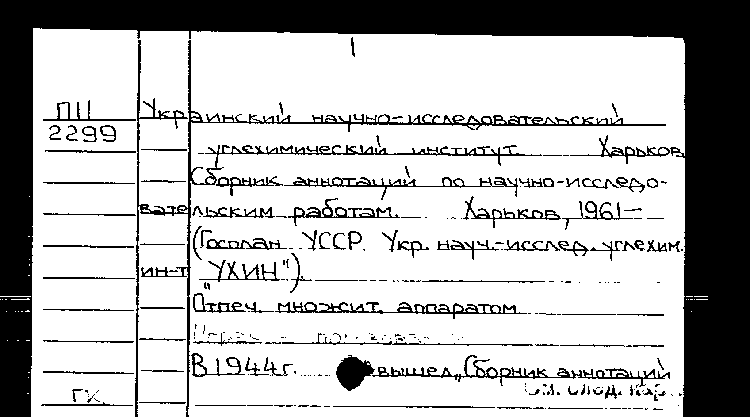 1
ПII Украинский научно-исследовательский
2299
углехимический институт. Харьков.
Сборник аннотаций по научно-исследо-
вательским работам. Харьков, 1961-
(Госплан УССР. Укр. науч.-исслед. углехим.
ин-т "УХИН").
Отпеч. множит. аппаратом
В 1944г. вышел „Сборник аннотаций
ГК См. след. кар.